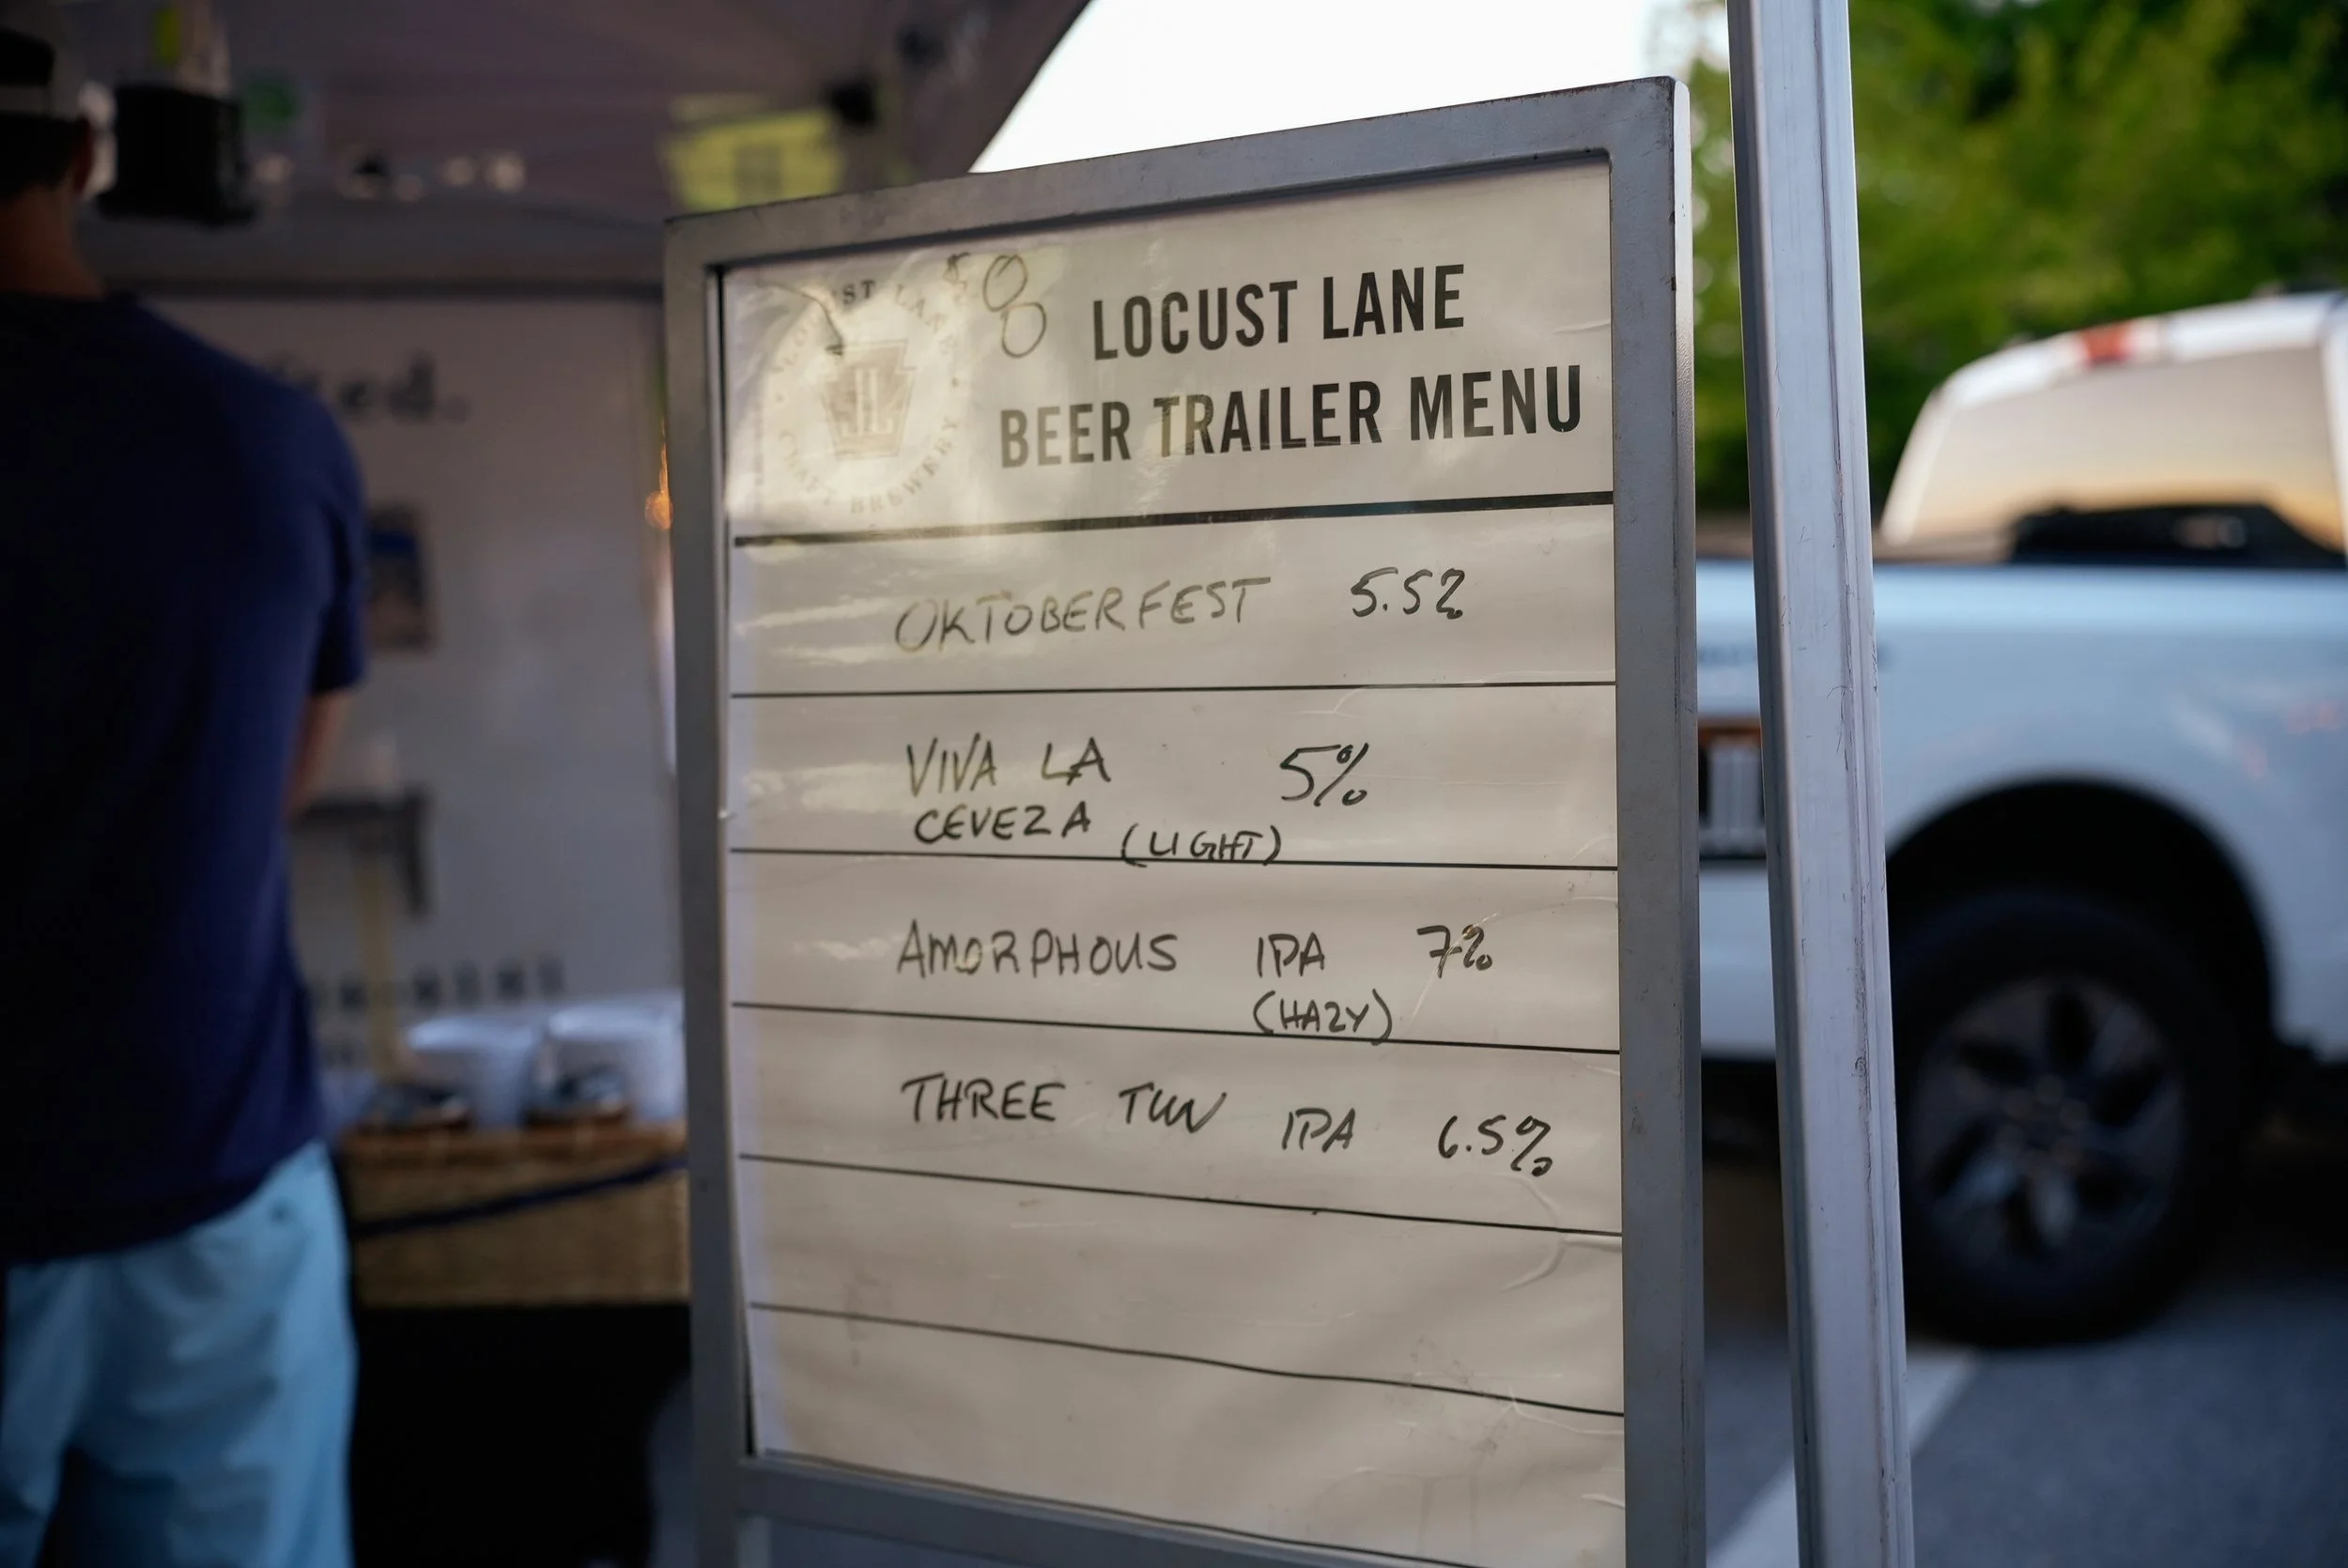 LOCUST LANE
CRAFT BREWERY
LOCUST LANE
BEER TRAILER MENU
OKTOBERFEST 5.5%
VIVA LA 5%
CEVEZA (LIGHT)
AMORPHOUS IPA 7%
(HAZY)
THREE TUN IPA 6.5%